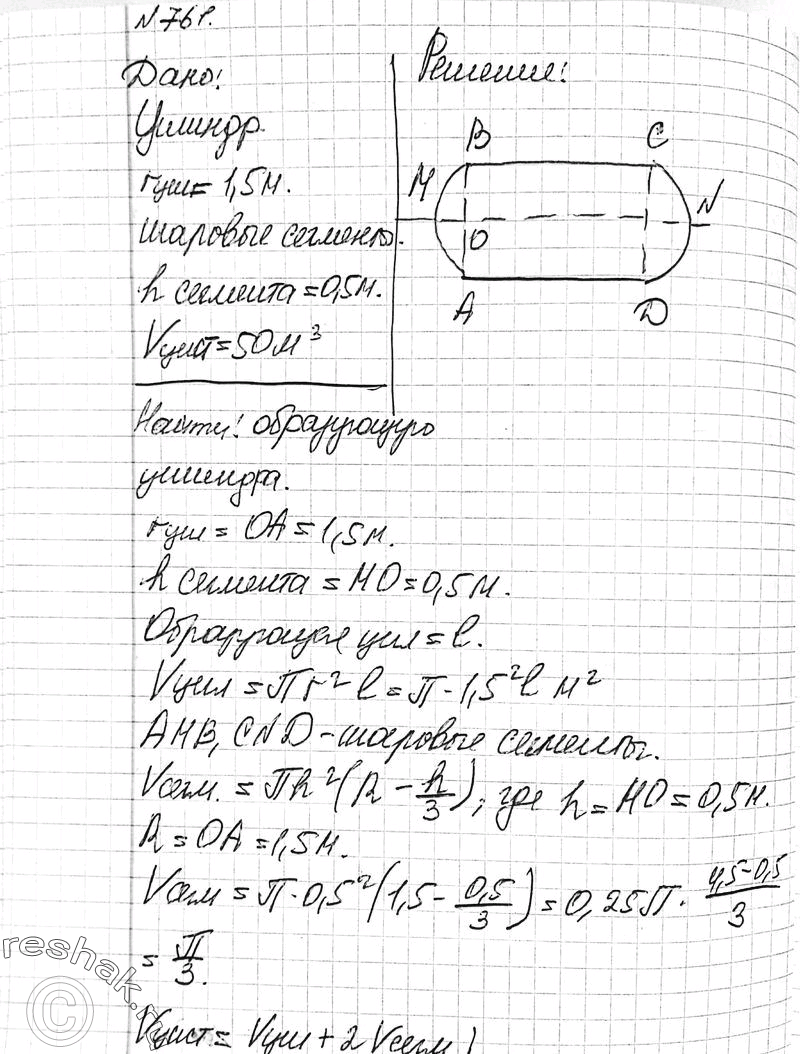 N 761.
Дано:
Решение:
Цилиндр
B C
rцил = 1,5 м.
M N
шаровые сегменты.
O
h сегмента = 0,5 м.
A D
Vцист = 50 м³
Найти: образующую
цилиндра.
rцил = OA = 1,5 м.
h сегмента = MO = 0,5 м.
Образующая цил = l.
Vцил = πr²l = π · 1,5²l м²
AMB, CND - шаровые сегменты.
Vсегм. = πh²(R - h/3), где h = MO = 0,5 м.
R = OA = 1,5 м.
Vсегм = π · 0,5²(1,5 - 0,5/3) = 0,25π · (4,5-0,5)/3
= π/3.
Vцист = Vцил + 2Vсегм
reshak.
©